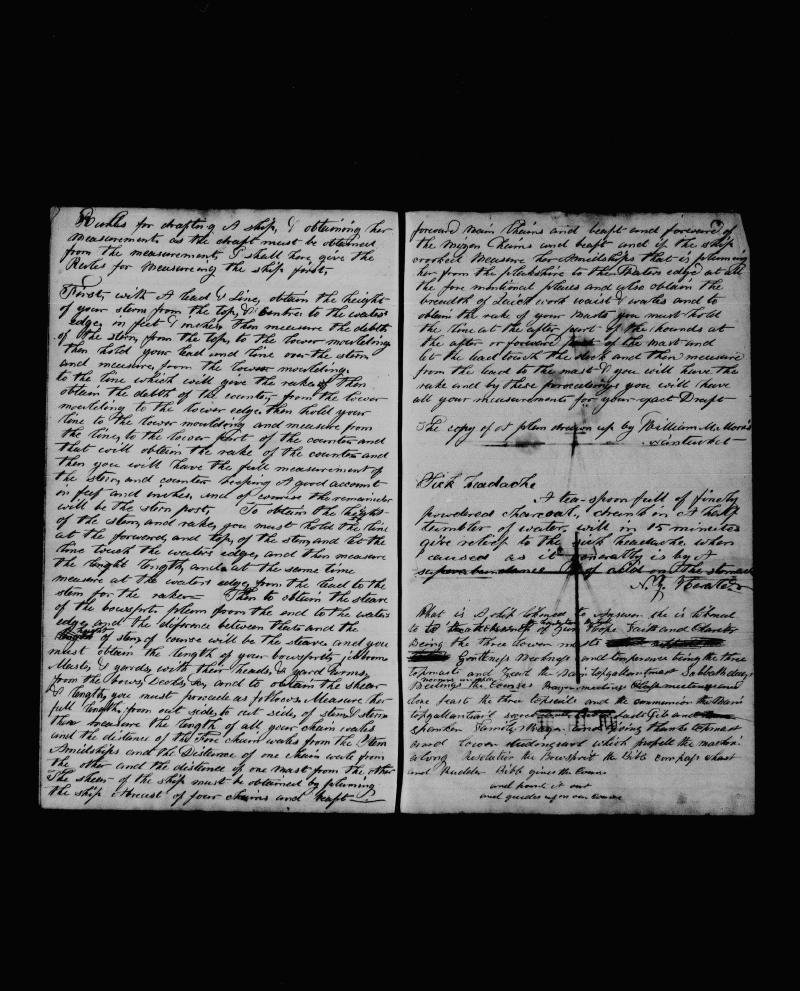 Rules for drafting A ship, & obtaining her
measurements as the draft must be obtained
from the measurements, I shall here give the
Rules for measureing the ship first.
First, with A lead & Line, obtain the height
of your stern from the top, & centre to the waters
edge, in feet & inches then measure the debth
of the stern, from the top, to the lower moulding
then hold your lead and line over the stern
and measure, from the lower moulding,
to the line which will give the rake, then
obtain the debth of the counter, from the lower
moulding to the lower edge, then hold your
line to the lower moulding and measure from
the line, to the lower part of the counter and
that will obtain the rake of the counter and
then you will have the full measurement of
the stern, and counter keeping A good account
in feet and inches, and of course the remainder
will be the stern post, To obtain the height
of the stem, and rake, you must hold the line
at the forward, and top, of the stem, and let the
line touch the waters edge, and then measure
the line's length, and at the same time
measure at the waters edge, from the lead to the
stem for the rake Then to obtain the steave
of the bowsprit, plum from the end to the waters
edge, and the diference between that and the
height of stem, of course will be the steave, and you
must obtain the length of your bowsprit, jibboom
Masts, & yards, with their heads, & yard arms,
from the bows, Decks, &c, and to obtain the shear
& length, you must procede as follows. Measure her
full length, from out side, to out side, of stem & stern
then measure the length of all your chain wales
and the distance of the Fore chain wales from the Stem
Amidships and the Distance of one chain wale from
the other and the distance of one mast from the other
The shear of the ship must be obtained by pluming
the ship abreast of four chains and beaft
forward main Chains and beaft and forward of
the mizon Chains and beaft and if the ship
crooked Measure her Amidships that is pluming
her from the plankshire to the waters edge at all
the fore mentioned places and also obtain the
breadth of quick work waist & wales and to
obtain the rake of your Masts you must hold
the line at the after part of the hounds at
the after or forward part of the mast and
let the lead touch the deck and then measure
from the lead to the mast & you will have the
rake and by these proceedings you will have
all your measurements for your exact Draft
The copy of A plan drawn up by William M. Morris
Nantucket
Sick headache
A tea-spoon full of finely
powdered charcoal, drank in A half
tumbler of water, will in 15 minutes
give relief to the sick headache when
caused as it generally is by A
superabundance of acid on the stomach
What is A ship likened to Answer she is likened
to Hope Faith and Charity
Being the three lower masts
Gentleness Meekness and temperance being the three
topmasts and Sabbath days
Meetings the Courses Prayer meetings Class meetings and
love feast the three topsails and the communion the Main
topgallantsail
Spanker Family Prayer and
and lower studingsail which propell the
along Resolution the Bowsprit the Bible compass chart
and Rudder Bibb gives the Course
and point it out
and guides us on our Course